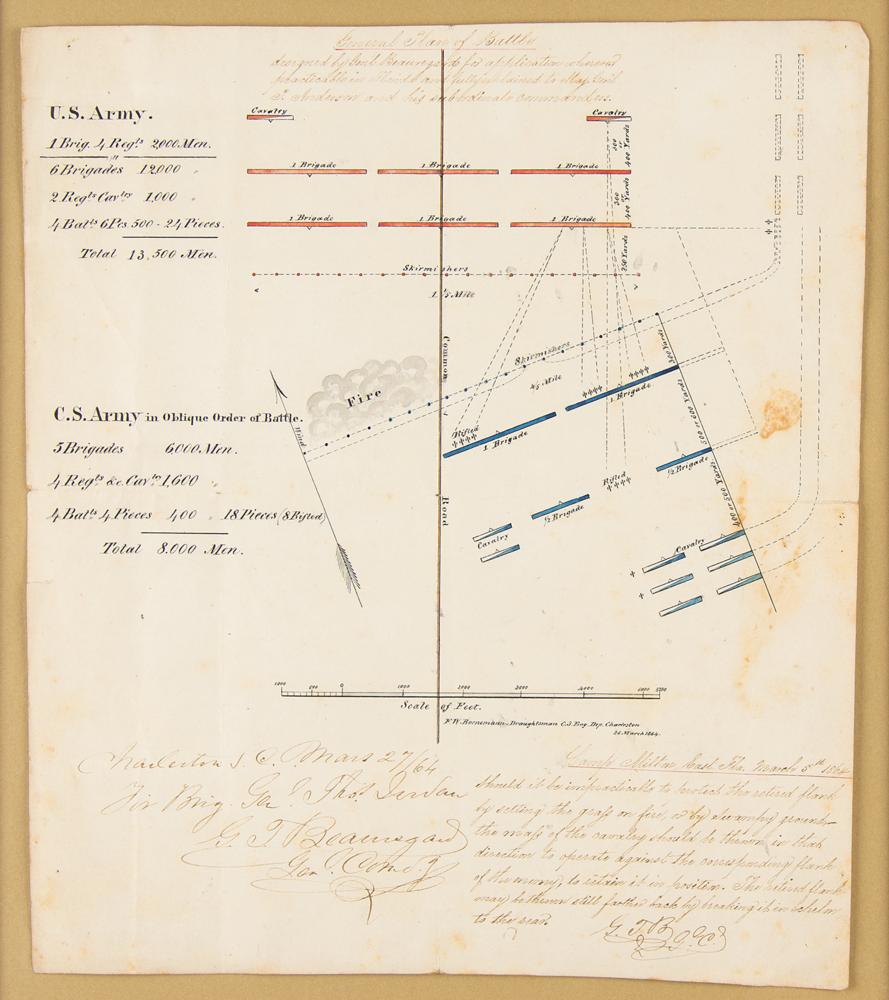 General Plan of Battle
designed by Genl Beauregard for application whenever
practicable in Florida and fully explained to Maj. Genl
P. Anderson and his subordinate commanders.
U.S. Army.
1 Brig. 4 Regts. 2,000 Men.
6 Brigades 12,000 "
2 Regts Cavlry 1,000 "
4 Batts 6 Pcs. 500 - 24 Pieces.
Total 13,500 Men.
Cavalry
Cavalry
1 Brigade
1 Brigade
1 Brigade
1 Brigade
1 Brigade
1 Brigade
300 or 400 Yards
300 or 400 Yards
250 Yards
Skirmishers
1 1/5 Mile
Common
Road
Fire
Wind
Skirmishers
4/5 Mile
300 Yards
500 or 600 Yards
400 or 500 Yards
Rifled
1 Brigade
1 Brigade
Rifled
1/2 Brigade
1/2 Brigade
Cavalry
Cavalry
C.S. Army in Oblique Order of Battle.
3 Brigades 6,000 Men.
4 Regts &c. Cavry 1,600
4 Batts 4 Pieces 400 " 18 Pieces (8 Rifled)
Total 8,000 Men.
1000 500 0 1000 2000 3000 4000 5000
Scale of Feet.
F.W. Bornemann - Draughtsman C.S. Eng. Dep. Charleston
26 March 1864.
Charleston S. C. Mars 27/64
For Brig. Genl. Thos Jordan
G T Beauregard
Genl. Comdg
Camp Milton East Fla. March 5th 1864
Should it be impracticable to protect the retired flank
by setting the grass on fire, or by swampy ground
the mass of the cavalry should be thrown in that
direction to operate against the corresponding flank
of the enemy, to retain it in position. The retired flank
may be thrown still farther back by breaking it in echelon
to the rear.
G. T. B.